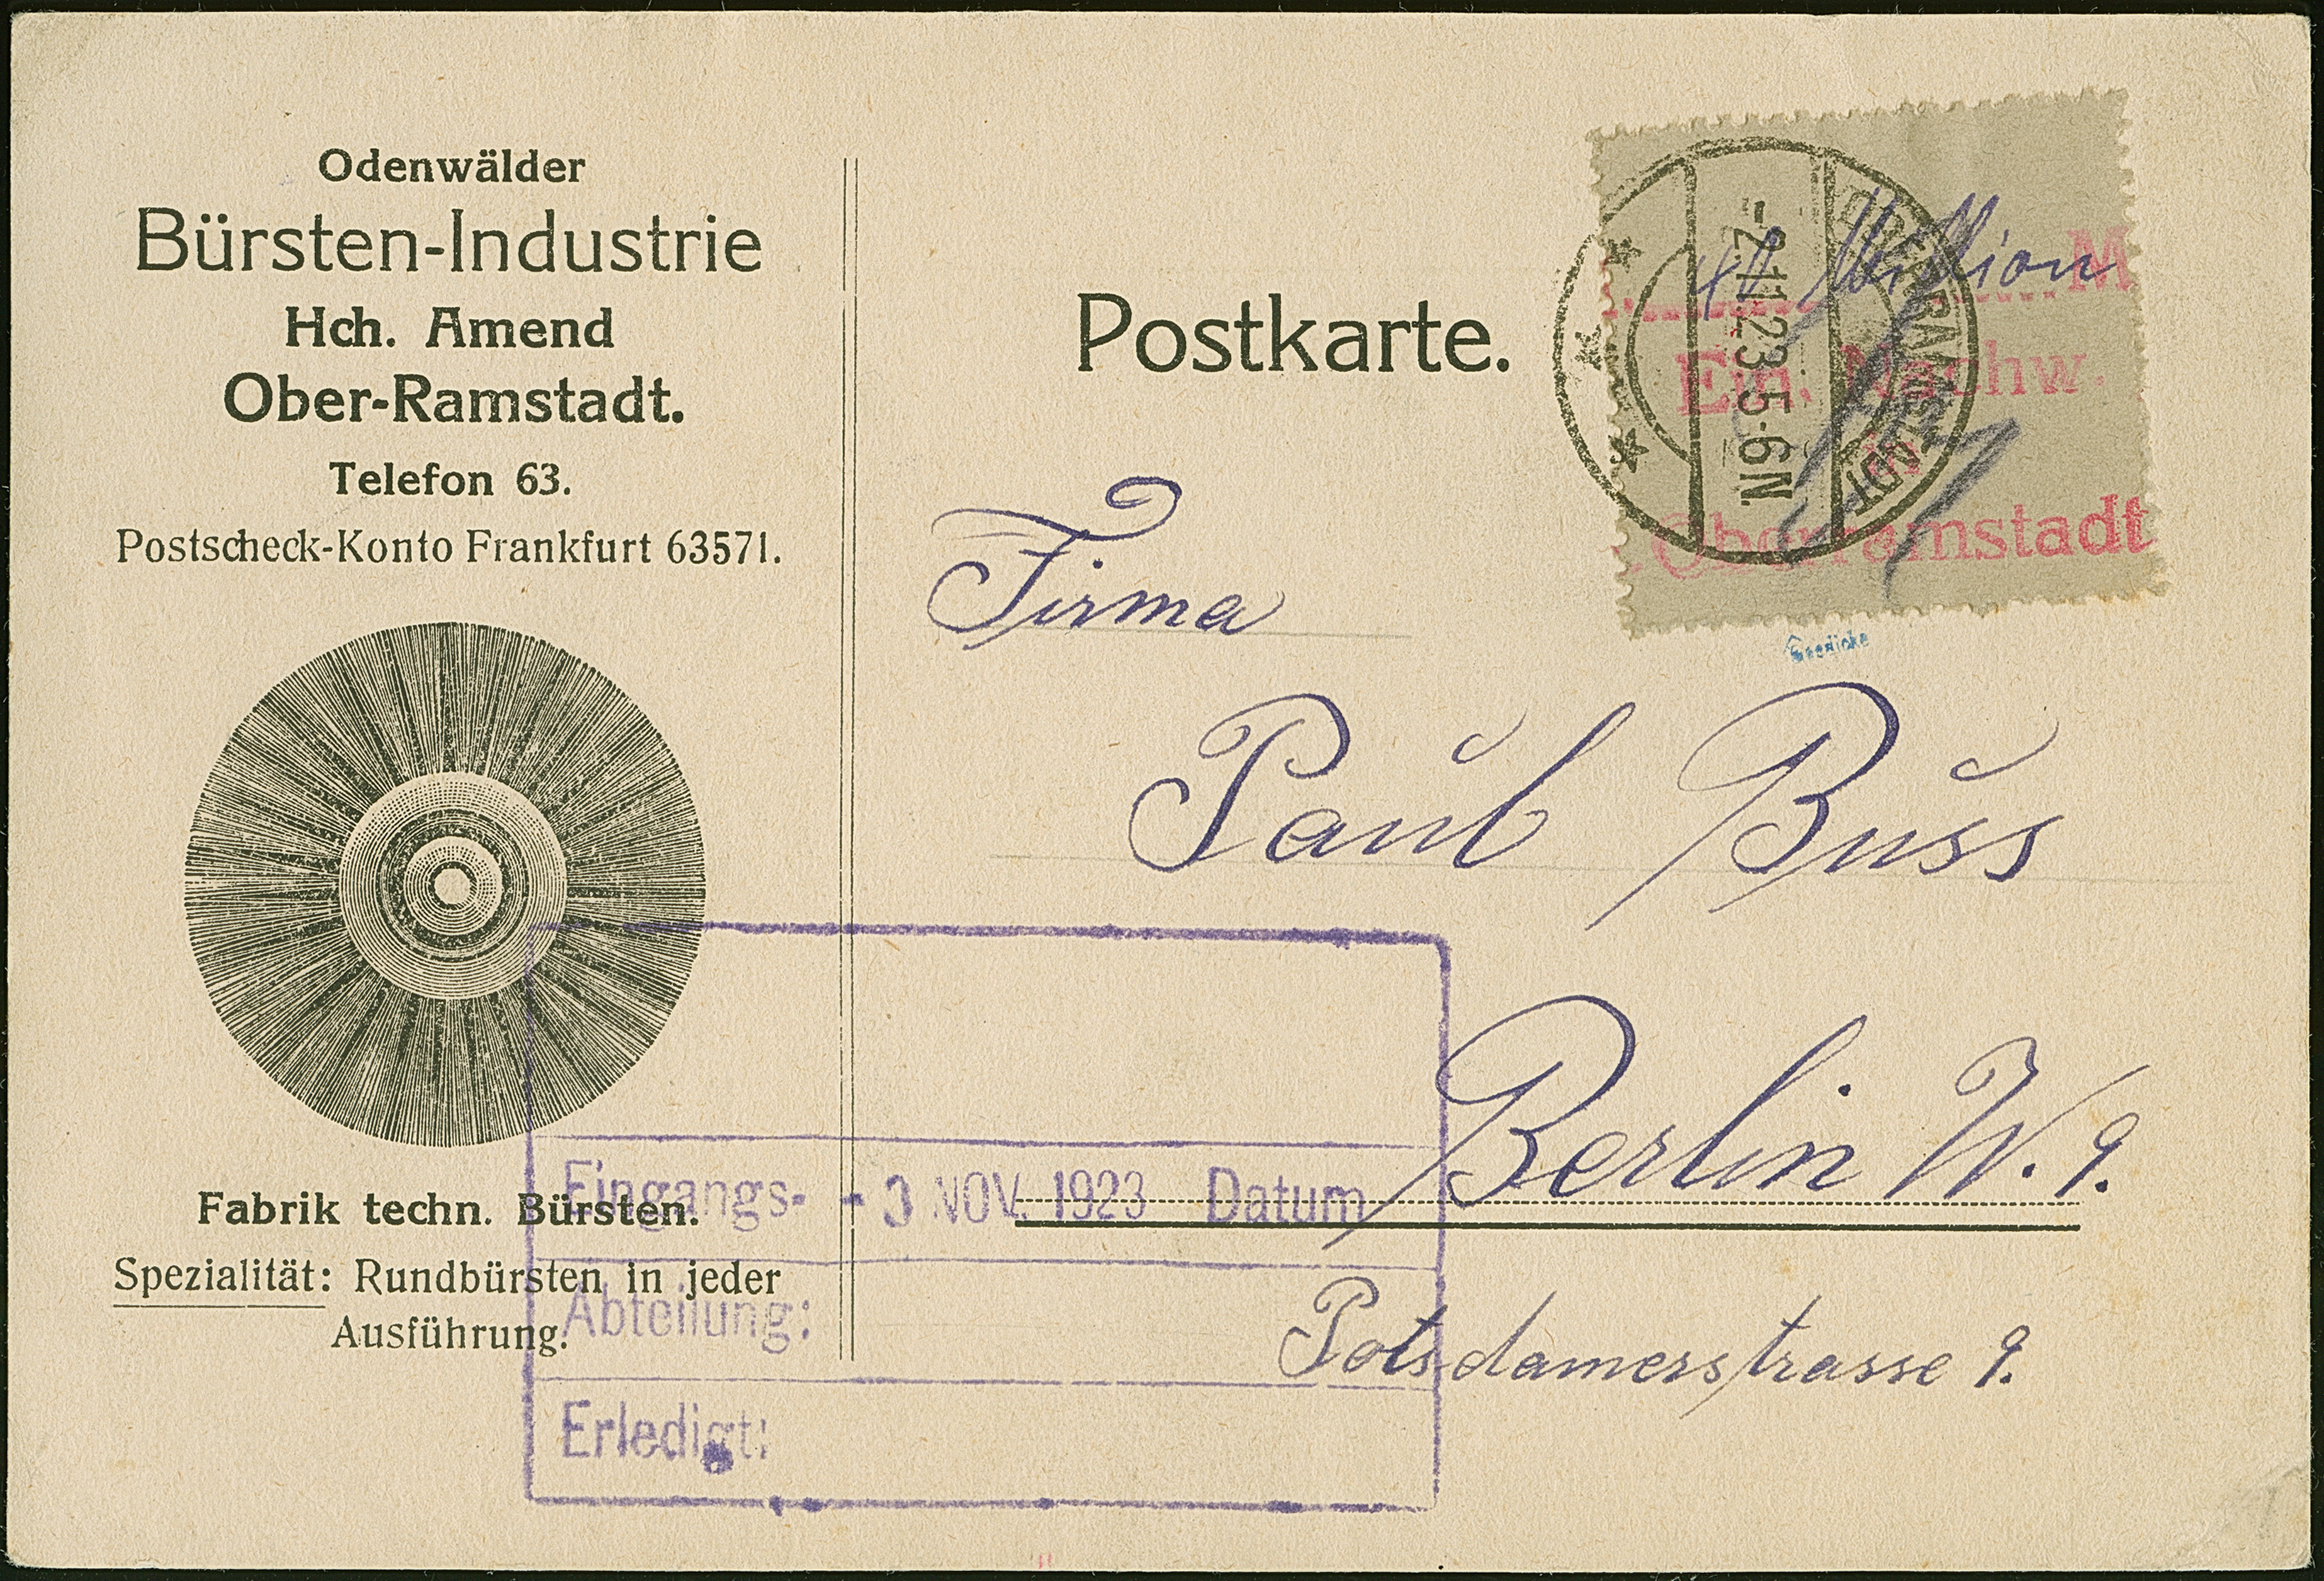 Odenwälder
Bürsten-Industrie
Hch. Amend
Ober-Ramstadt.
Telefon 63.
Postscheck-Konto Frankfurt 63571.
Fabrik techn. Bürsten.
Spezialität: Rundbürsten in jeder
Ausführung.
Postkarte.
40 Million M
Ein. Nachw.
in
Oberramstadt
-2.11.23.5-6N.
Firma
Paul Buss
Berlin W. 9.
Potsdamerstrasse 9.
Eingangs- - 3 NOV. 1923 Datum
Abteilung:
Erledigt: